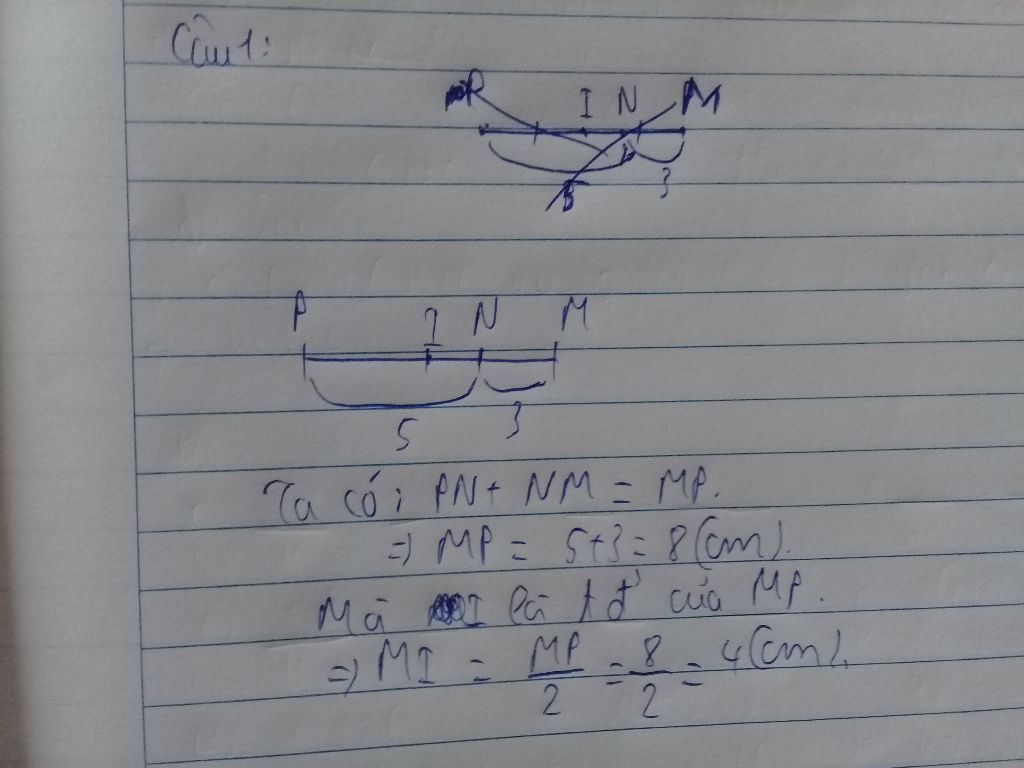 Câu 1:
P I N M
5 3
P I N M
5 3
Ta có: PN + NM = MP.
=> MP = 5+3 = 8 (cm).
Mà I là tđ của MP.
=> MI = MP/2 = 8/2 = 4 (cm).